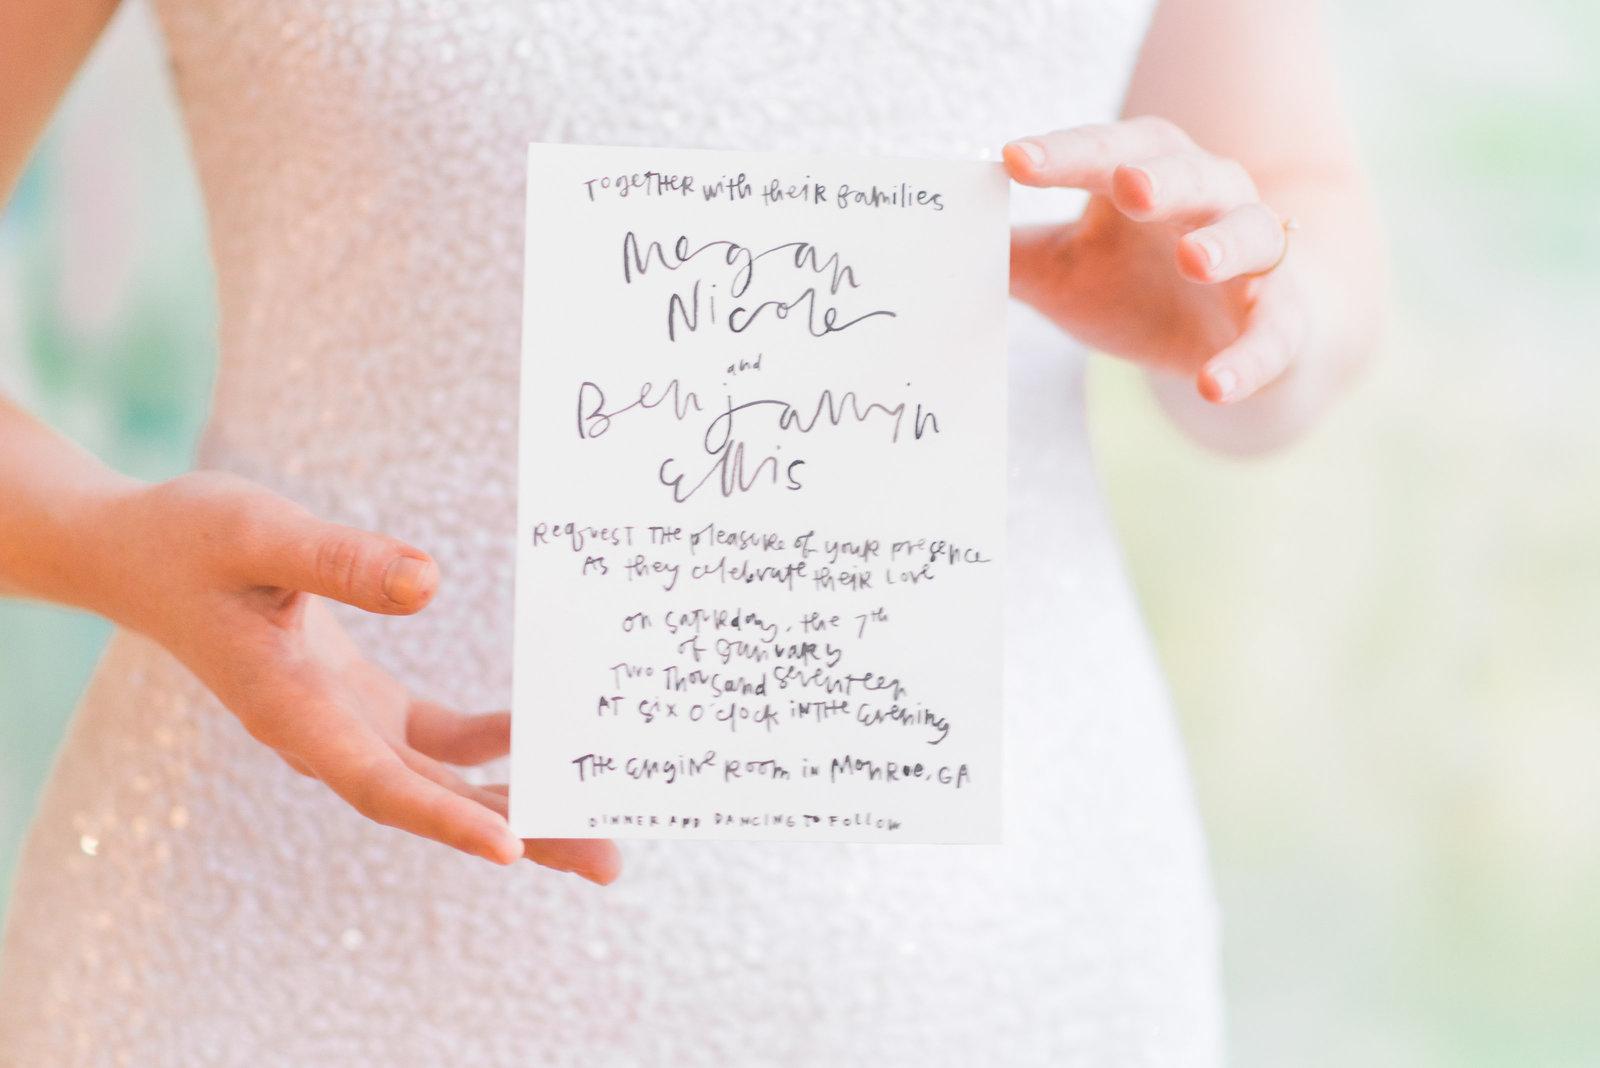 TogeTHER with theiR families
Megan
Nicole
and
Benjamin
Ellis
ReqUesT THe pleasuRe of youR presence
As they celebrate theiR Love
on SatuRday, the 7th
of JanuaRy
Two ThouSand Seventeen
AT Six O'clock iN THe Evening
THe EngiNe Room in MonRoe, GA
DINNER AND DANCING TO FOLLOW